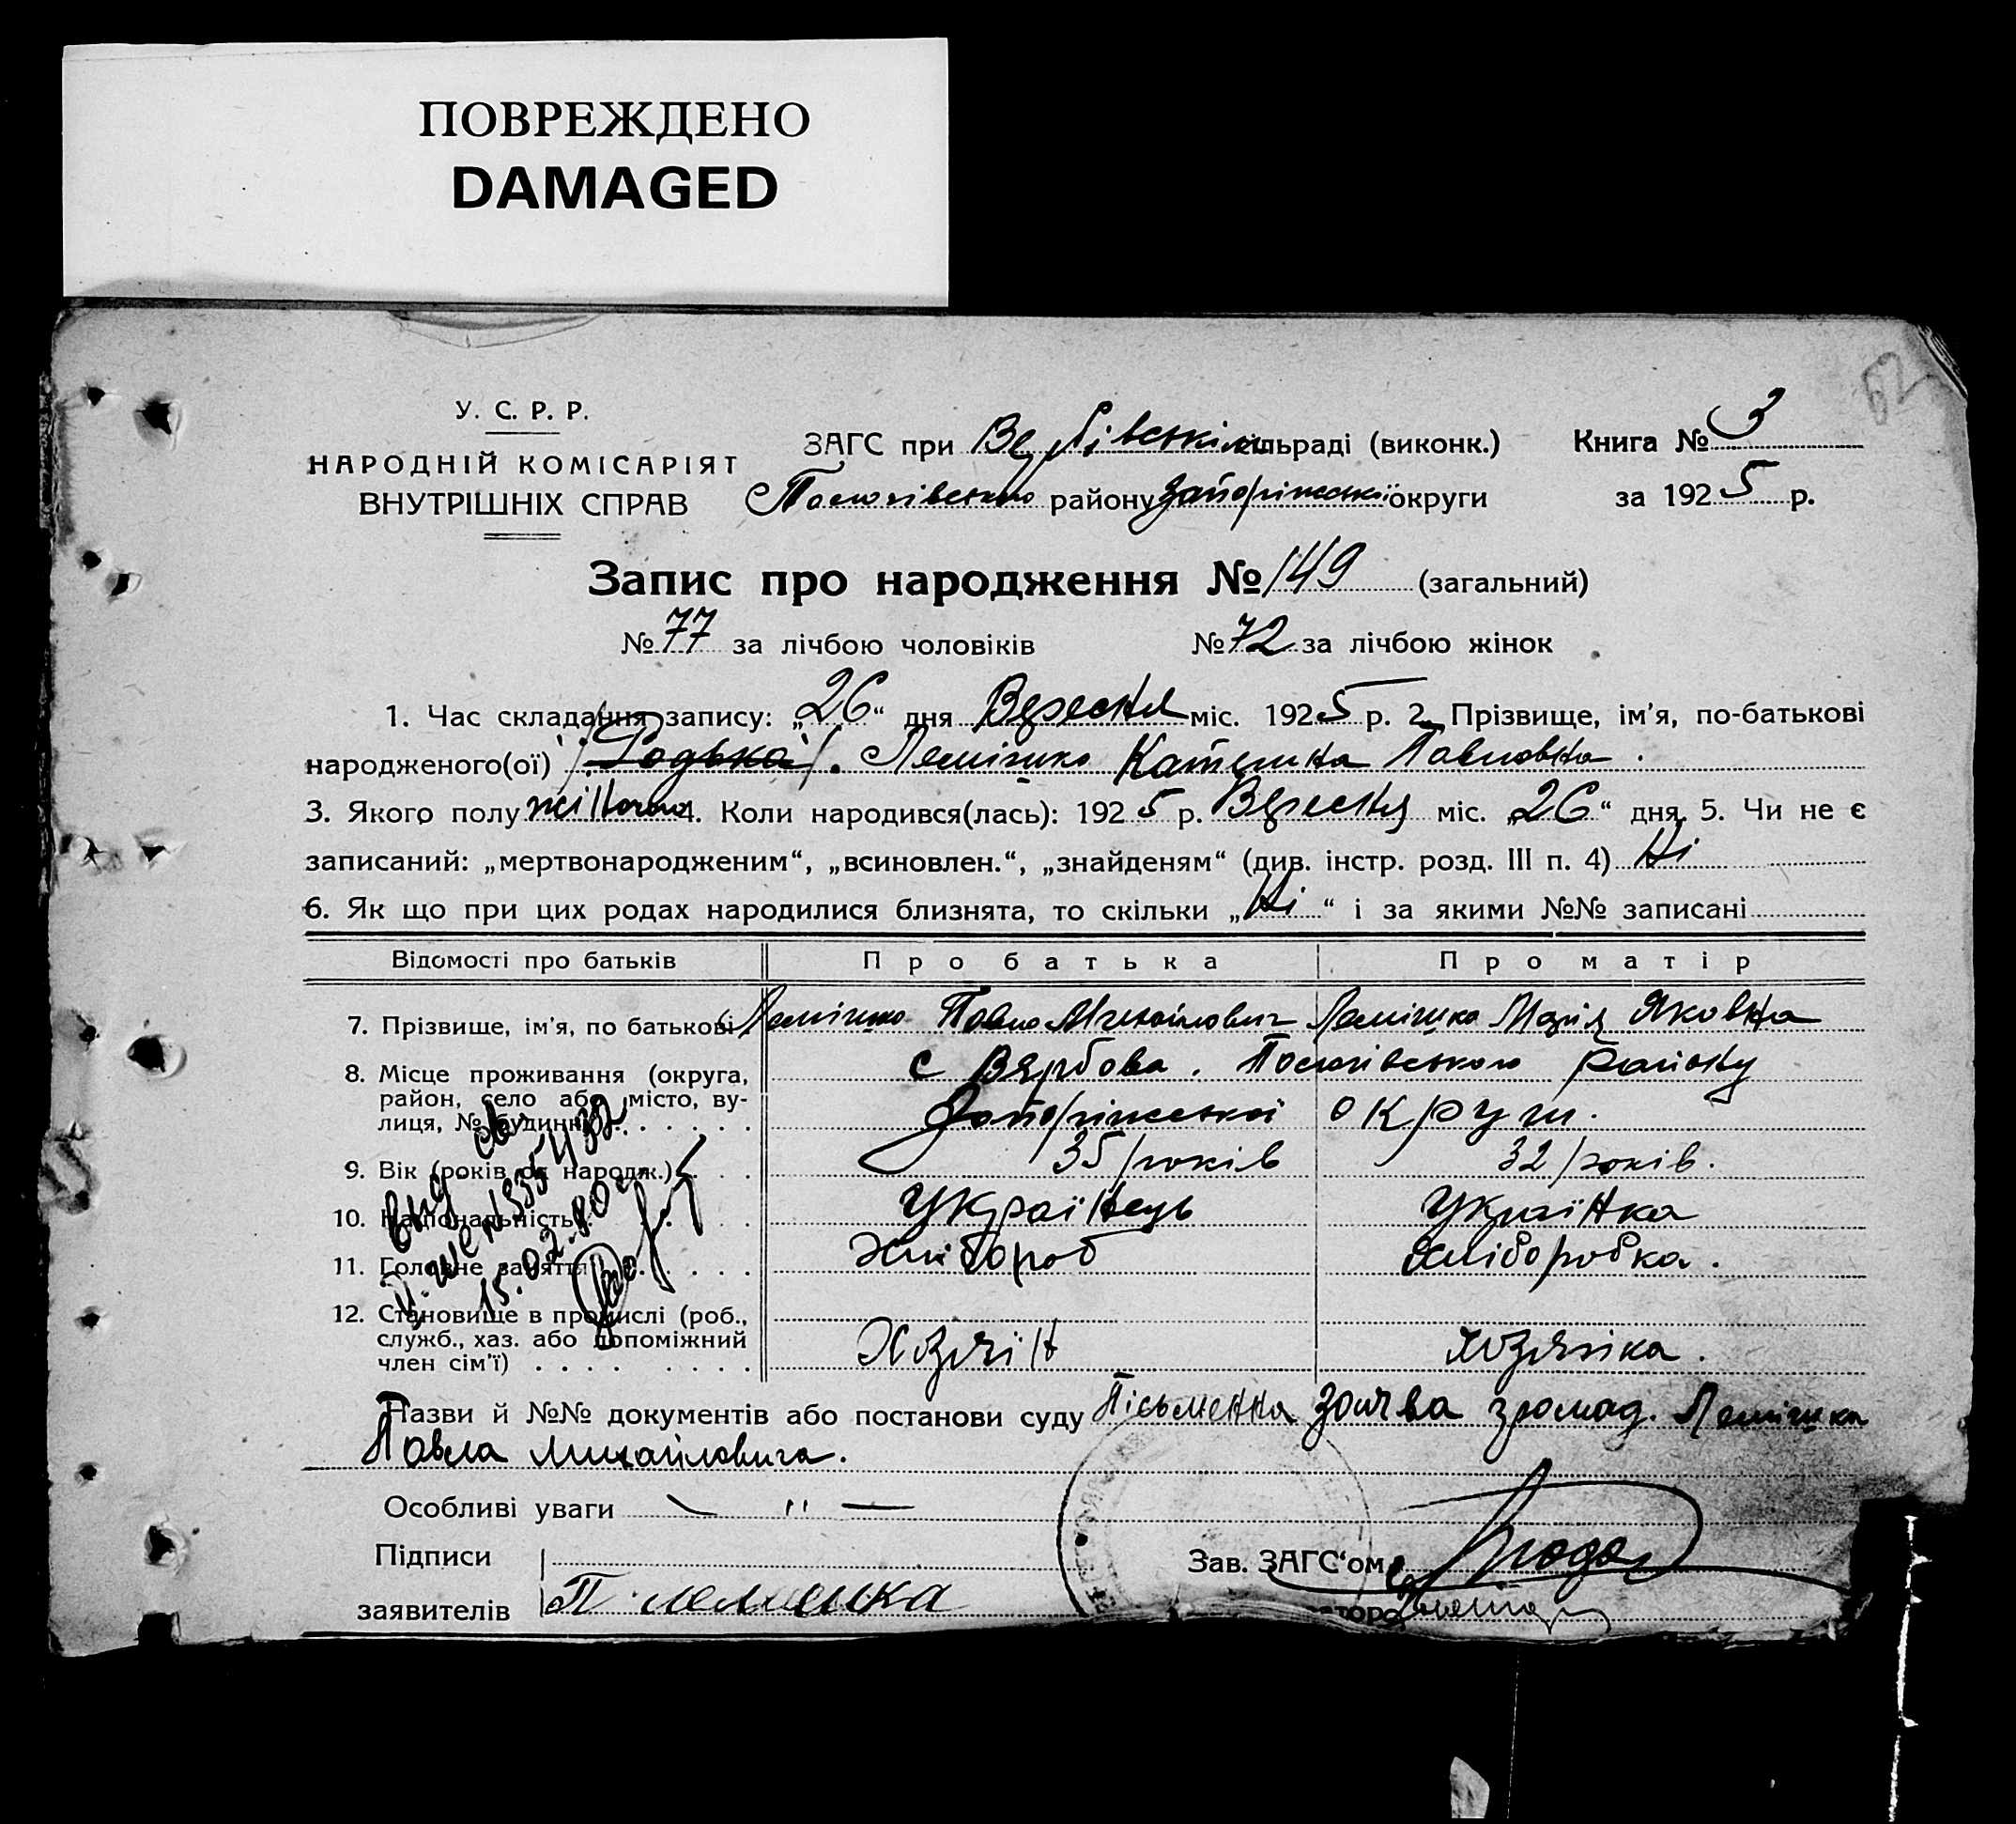 ПОВРЕЖДЕНО
DAMAGED
62
У. С. Р. Р.
НАРОДНІЙ КОМІСАРІЯТ
ВНУТРІШНІХ СПРАВ
ЗАГС при Вербівській сільраді (виконк.)
Пологівського району Запоріжської округи
Книга № 3
за 1925 р.
Запис про народження № 149 (загальний)
№ 77 за лічбою чоловіків № 72 за лічбою жінок
1. Час складання запису: „26“ дня Вересня міс. 1925 р. 2. Прізвище, ім’я, по-батькові
народженого(ої) Лемішко Катерина Павловна.
3. Якого полу жіночого 4. Коли народився(лась): 1925 р. Вересня міс. „26“ дня. 5. Чи не є
записаний: „мертвонародженим“, „всиновлен.“, „знайденям“ (див. інстр. розд. III п. 4) Ні
6. Як що при цих родах народилися близнята, то скільки „Ні“ і за якими №№ записані
Відомості про батьків Про батька Про матір
7. Прізвище, ім’я, по батькові Лемішко Павло Михайлович Лемішко Марія Яковна
8. Місце проживання (округа, район, село або місто, вулиця, № будинку) с Вербова. Пологівського району
Запоріжської округи.
9. Вік (років од народж.) 35 років 32 років.
10. Національність Українець Українка
11. Головне заняття Хлібороб хліборобка.
12. Становище в промислі (роб., служб., хаз. або допоміжний член сім’ї) Хозяїн хозяїка.
15.02.80
Назви й №№ документів або постанови суду Пісьменна заява громад. Лемішка
Павла Михайловича.
Особливі уваги — " —
Підписи
заявителів П Лемешка
Зав. ЗАГС‘ом